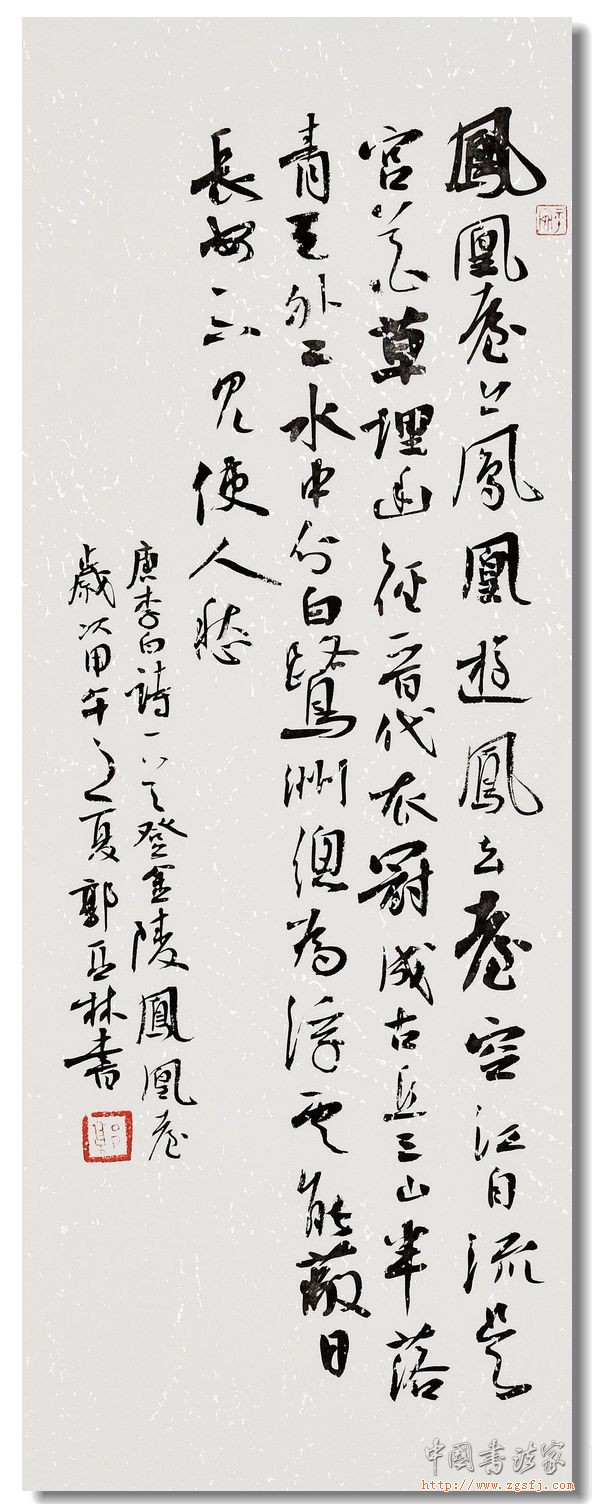 鳳凰臺上鳳凰遊鳳去臺空江自流吳
宮花草埋幽徑晉代衣冠成古丘三山半落
青天外二水中分白鷺洲總為浮雲能蔽日
長安不見使人愁
唐李白詩一首登金陵鳳凰臺
歲次甲午之夏郭林書
中國書法家
http://www.zgsfj.com